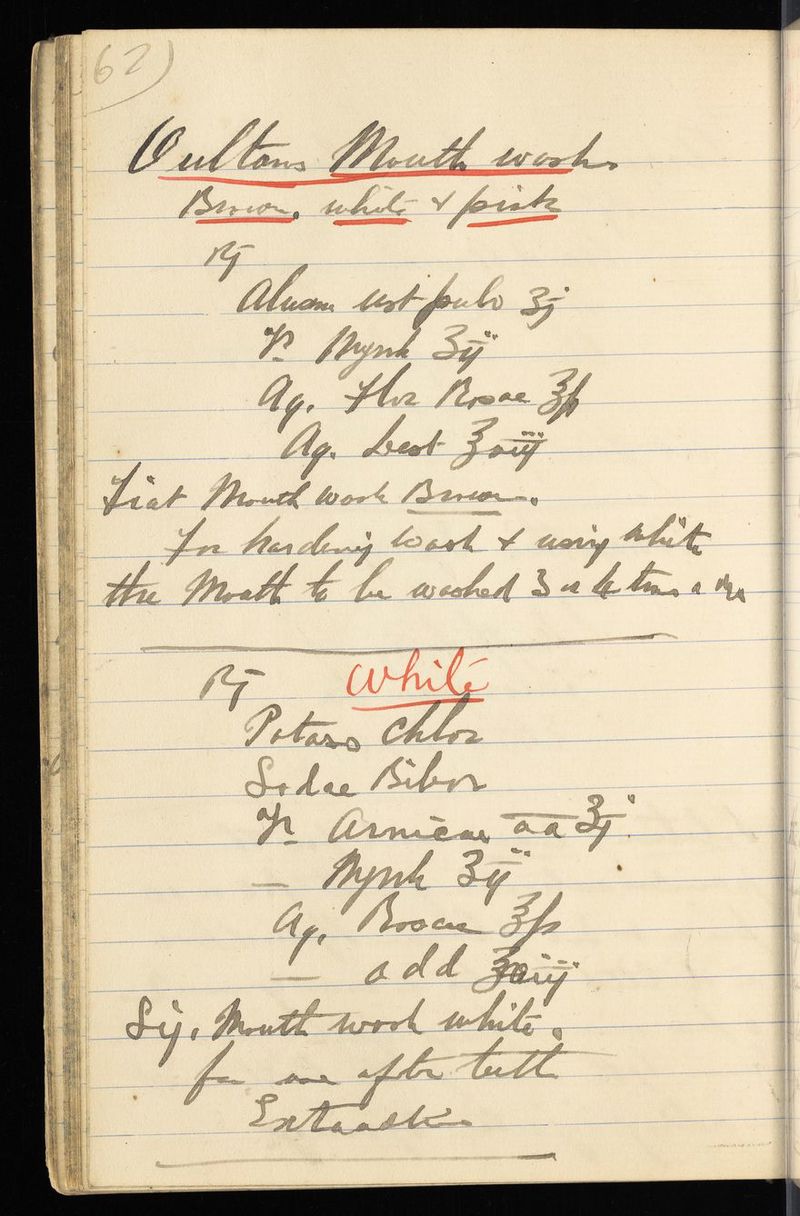 62)
Oultons Mouth wash
Brown, white & pink
℞
Alum ust pulv ʒj
Tr Myrrh ʒij
Aq. Flor Rosae ℥ß
Aq. Dest ℥viij
Fiat Mouth Wash Brown.
For hardening Wash & using white
the Mouth to be washed 3 or 4 times a day
℞ White
Potass Chlor
Sodae Bibor
Tr Arnicae aa ʒj
— Myrrh ʒij
Aq. Rosae ℥ß
— add ℥viij
Sig. Mouth wash white.
for use after teeth
Extraction